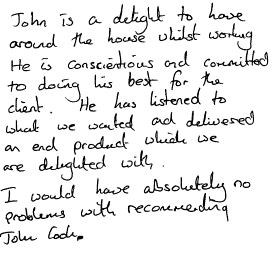 John is a delight to have
around the house whilst working
He is conscientious and committed
to doing his best for the
client. He has listened to
what we wanted and delivered
an end product which we
are delighted with.
I would have absolutely no
problems with recommending
John